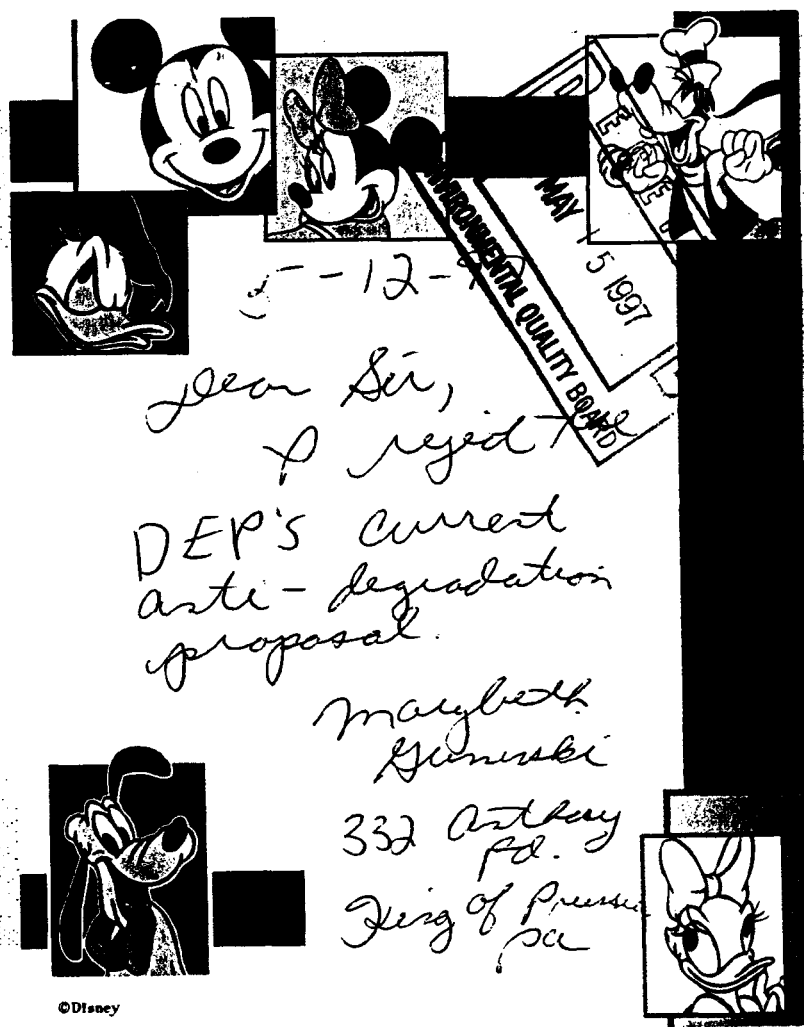 MAY 15 1997
ENVIRONMENTAL QUALITY BOARD
5-12-97
Dear Sir,
I reject the
DEP'S current
anti-degradation
proposal.
Marybeth
332 Anthony
Rd.
King of Prussia
pa
©Disney